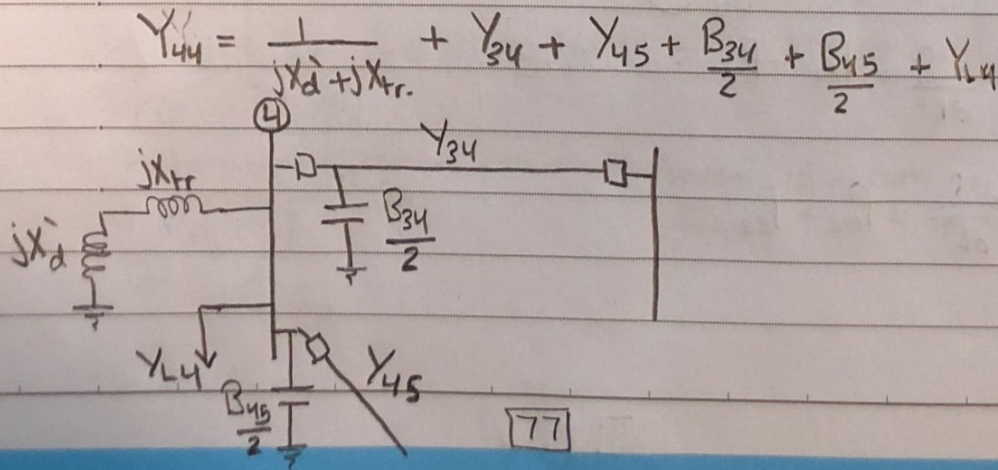 Y44 = 1/(jXd' + jXtr.) + Y34 + Y45 + B34/2 + B45/2 + YL4
4
Y34
jXtr
B34/2
jXd'
YL4
Y45
B45/2
77